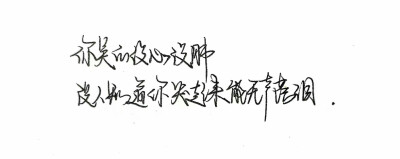 你哭的没心没肺
没人知道你笑起来能无声落泪.